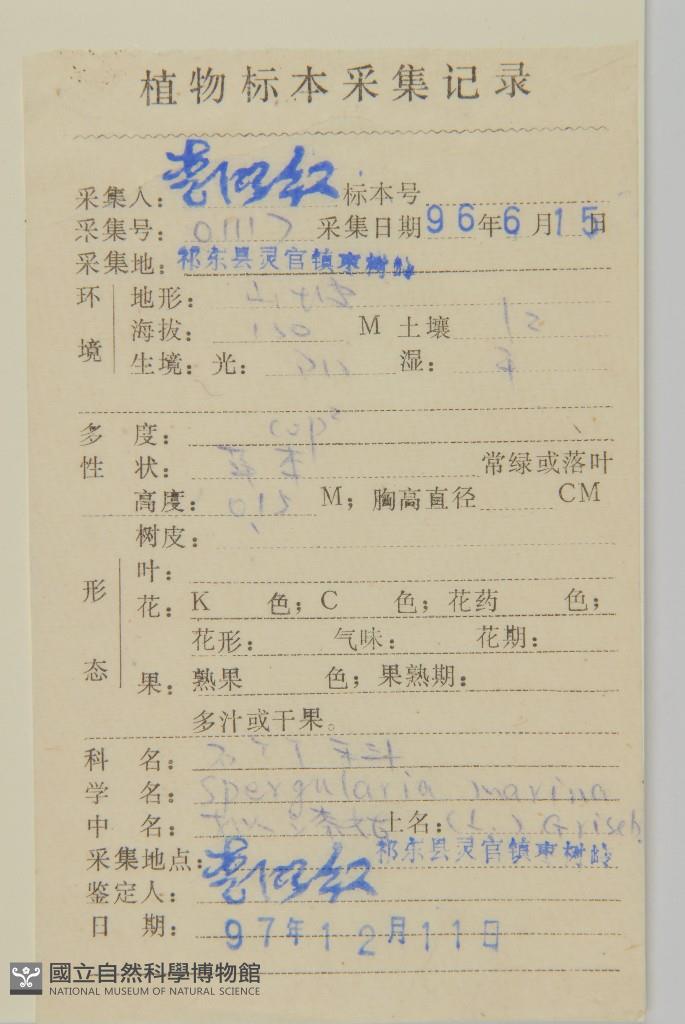 植物标本采集记录
采集人： 标本号
采集号： 采集日期 96年6月15日
采集地：祁东县灵官镇枣树岭
环境 地形：
海拔： M 土壤
生境：光： 湿：
多 度： cop²
性 状： 常绿或落叶
高度： M；胸高直径 CM
形态 树皮：
叶：
花：K 色；C 色；花药 色；
花形： 气味： 花期：
果：熟果 色；果熟期：
多汁或干果。
科 名：石竹科
学 名：Spergularia marina
中 名： 土名：(L.) Griseb.
采集地点：祁东县灵官镇枣树岭
鉴定人：
日 期：97年12月11日
國立自然科學博物館
NATIONAL MUSEUM OF NATURAL SCIENCE